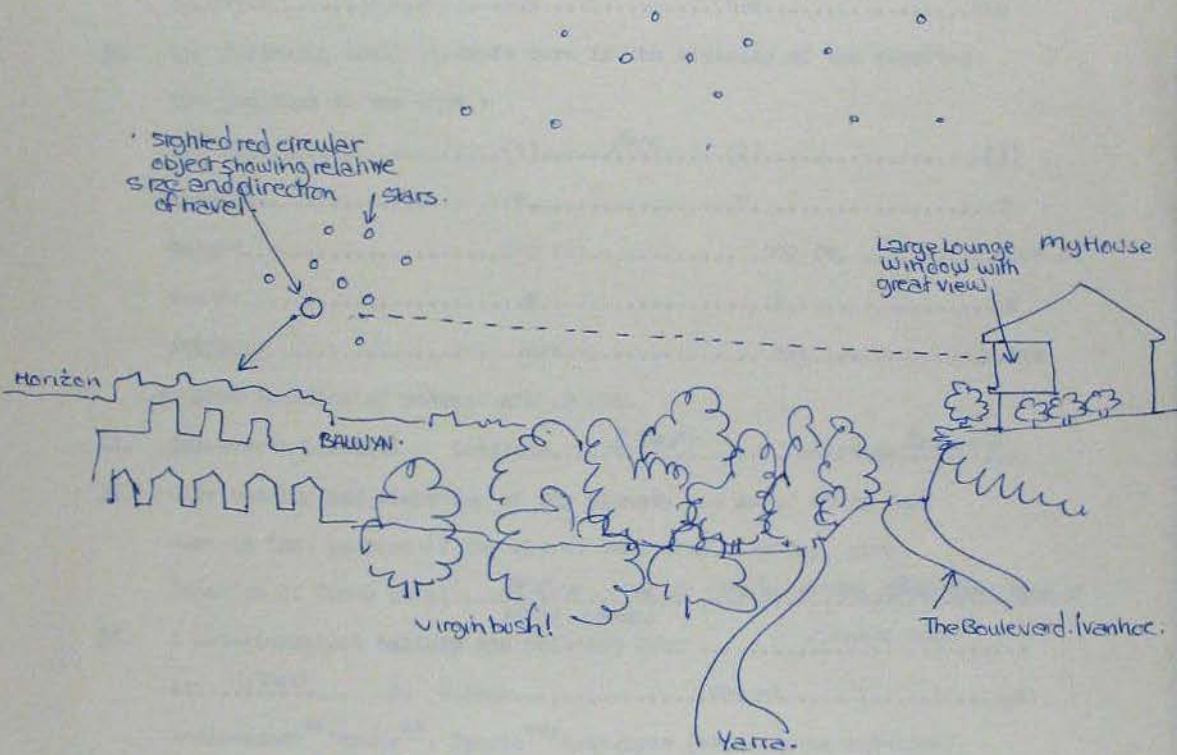 sighted red circular
object showing relative
size and direction
of travel.
stars.
Large Lounge
window with
great view
My House
Horizon
BALWYN.
virgin bush!
The Boulevard. Ivanhoe.
Yarra.